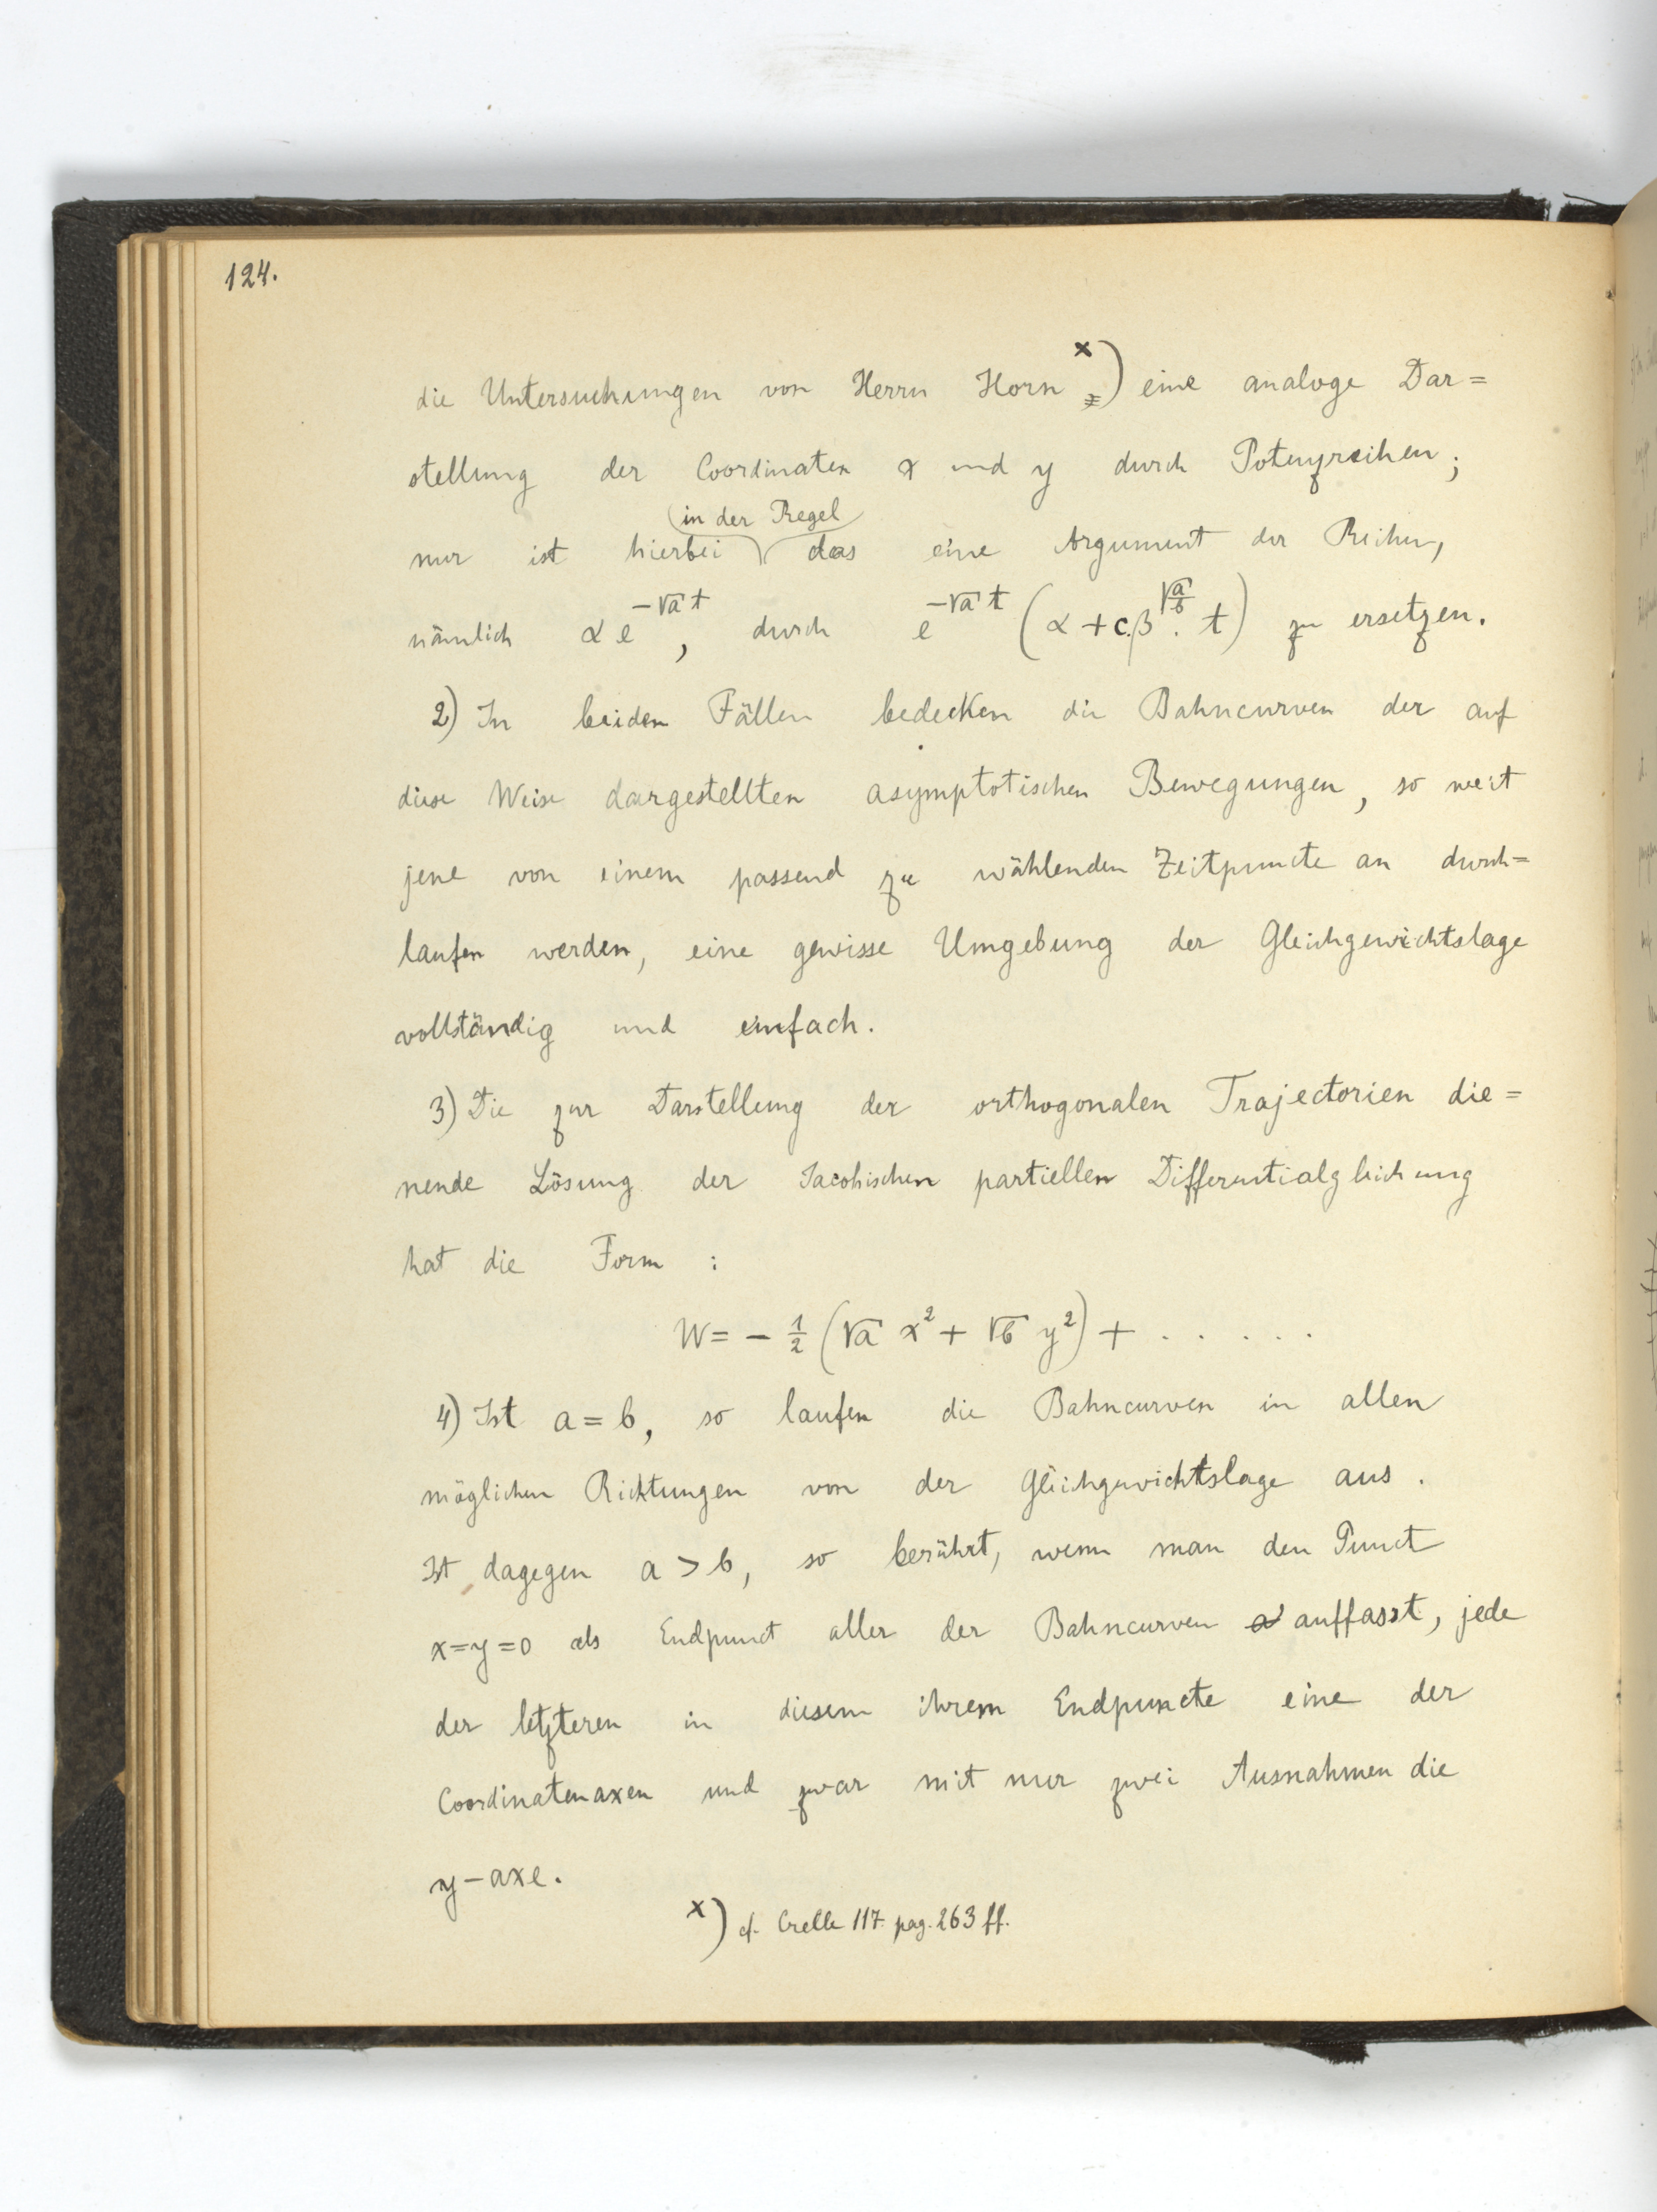 124.
die Untersuchungen von Herrn Horn x) eine analoge Dar=
stellung der Coordinaten x und y durch Potenzreihen;
in der Regel
nur ist hierbei das eine Argument der Reihen,
nämlich α e^{-√a t}, durch e^{-√a t} (α + c.β^{√(a/b)} . t) zu ersetzen.
2) In beiden Fällen bedecken die Bahncurven der auf
diese Weise dargestellten asymptotischen Bewegungen, so weit
jene von einem passend zu wählenden Zeitpuncte an durch=
laufen werden, eine gewisse Umgebung der Gleichgewichtslage
vollständig und einfach.
3) Die zur Darstellung der orthogonalen Trajectorien die=
nende Lösung der Jacobischen partiellen Differentialgleichung
hat die Form :
W = - 1/2 (√a x² + √b y²) + . . . . .
4) Ist a = b, so laufen die Bahncurven in allen
möglichen Richtungen von der Gleichgewichtslage aus.
Ist dagegen a > b, so berührt, wenn man den Punct
x = y = 0 als Endpunct aller der Bahncurven auffasst, jede
der letzteren in diesem ihrem Endpuncte eine der
Coordinatenaxen und zwar mit nur zwei Ausnahmen die
y-axe.
x) cf. Crelle 117 pag. 263 ff.